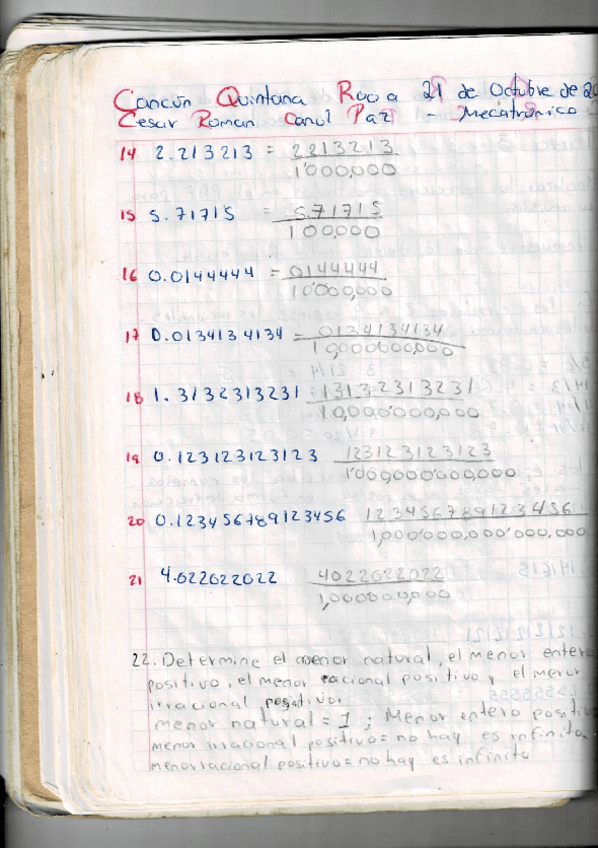 Cancún Quintana Roo a 21 de Octubre de 20
Cesar Roman Canul Paz - Mecatronica
14 2.213213 = 2213213
1'000,000
15 5.71715 = 5.71715
100,000
16 0.0144444 = 0144444
10'000,000
17 0.0134134134 = 0134134134
10,000,000,000
18 1.3132313231 = 13132313231
10,000,000,000
19 0.123123123123 123123123123
1'000,000'000,000
20 0.123456789123456 123456789123456
1,000,000,000'000,000
21 4.022022022 4022022022
1,000,000,000
22. Determine el menor natural, el menor entero
positivo, el menor racional positivo y el menor
irracional positivo.
menor natural = 1 ; Menor entero positivo
menor irracional positivo = no hay es infinita.
menor racional positivo = no hay es infinito